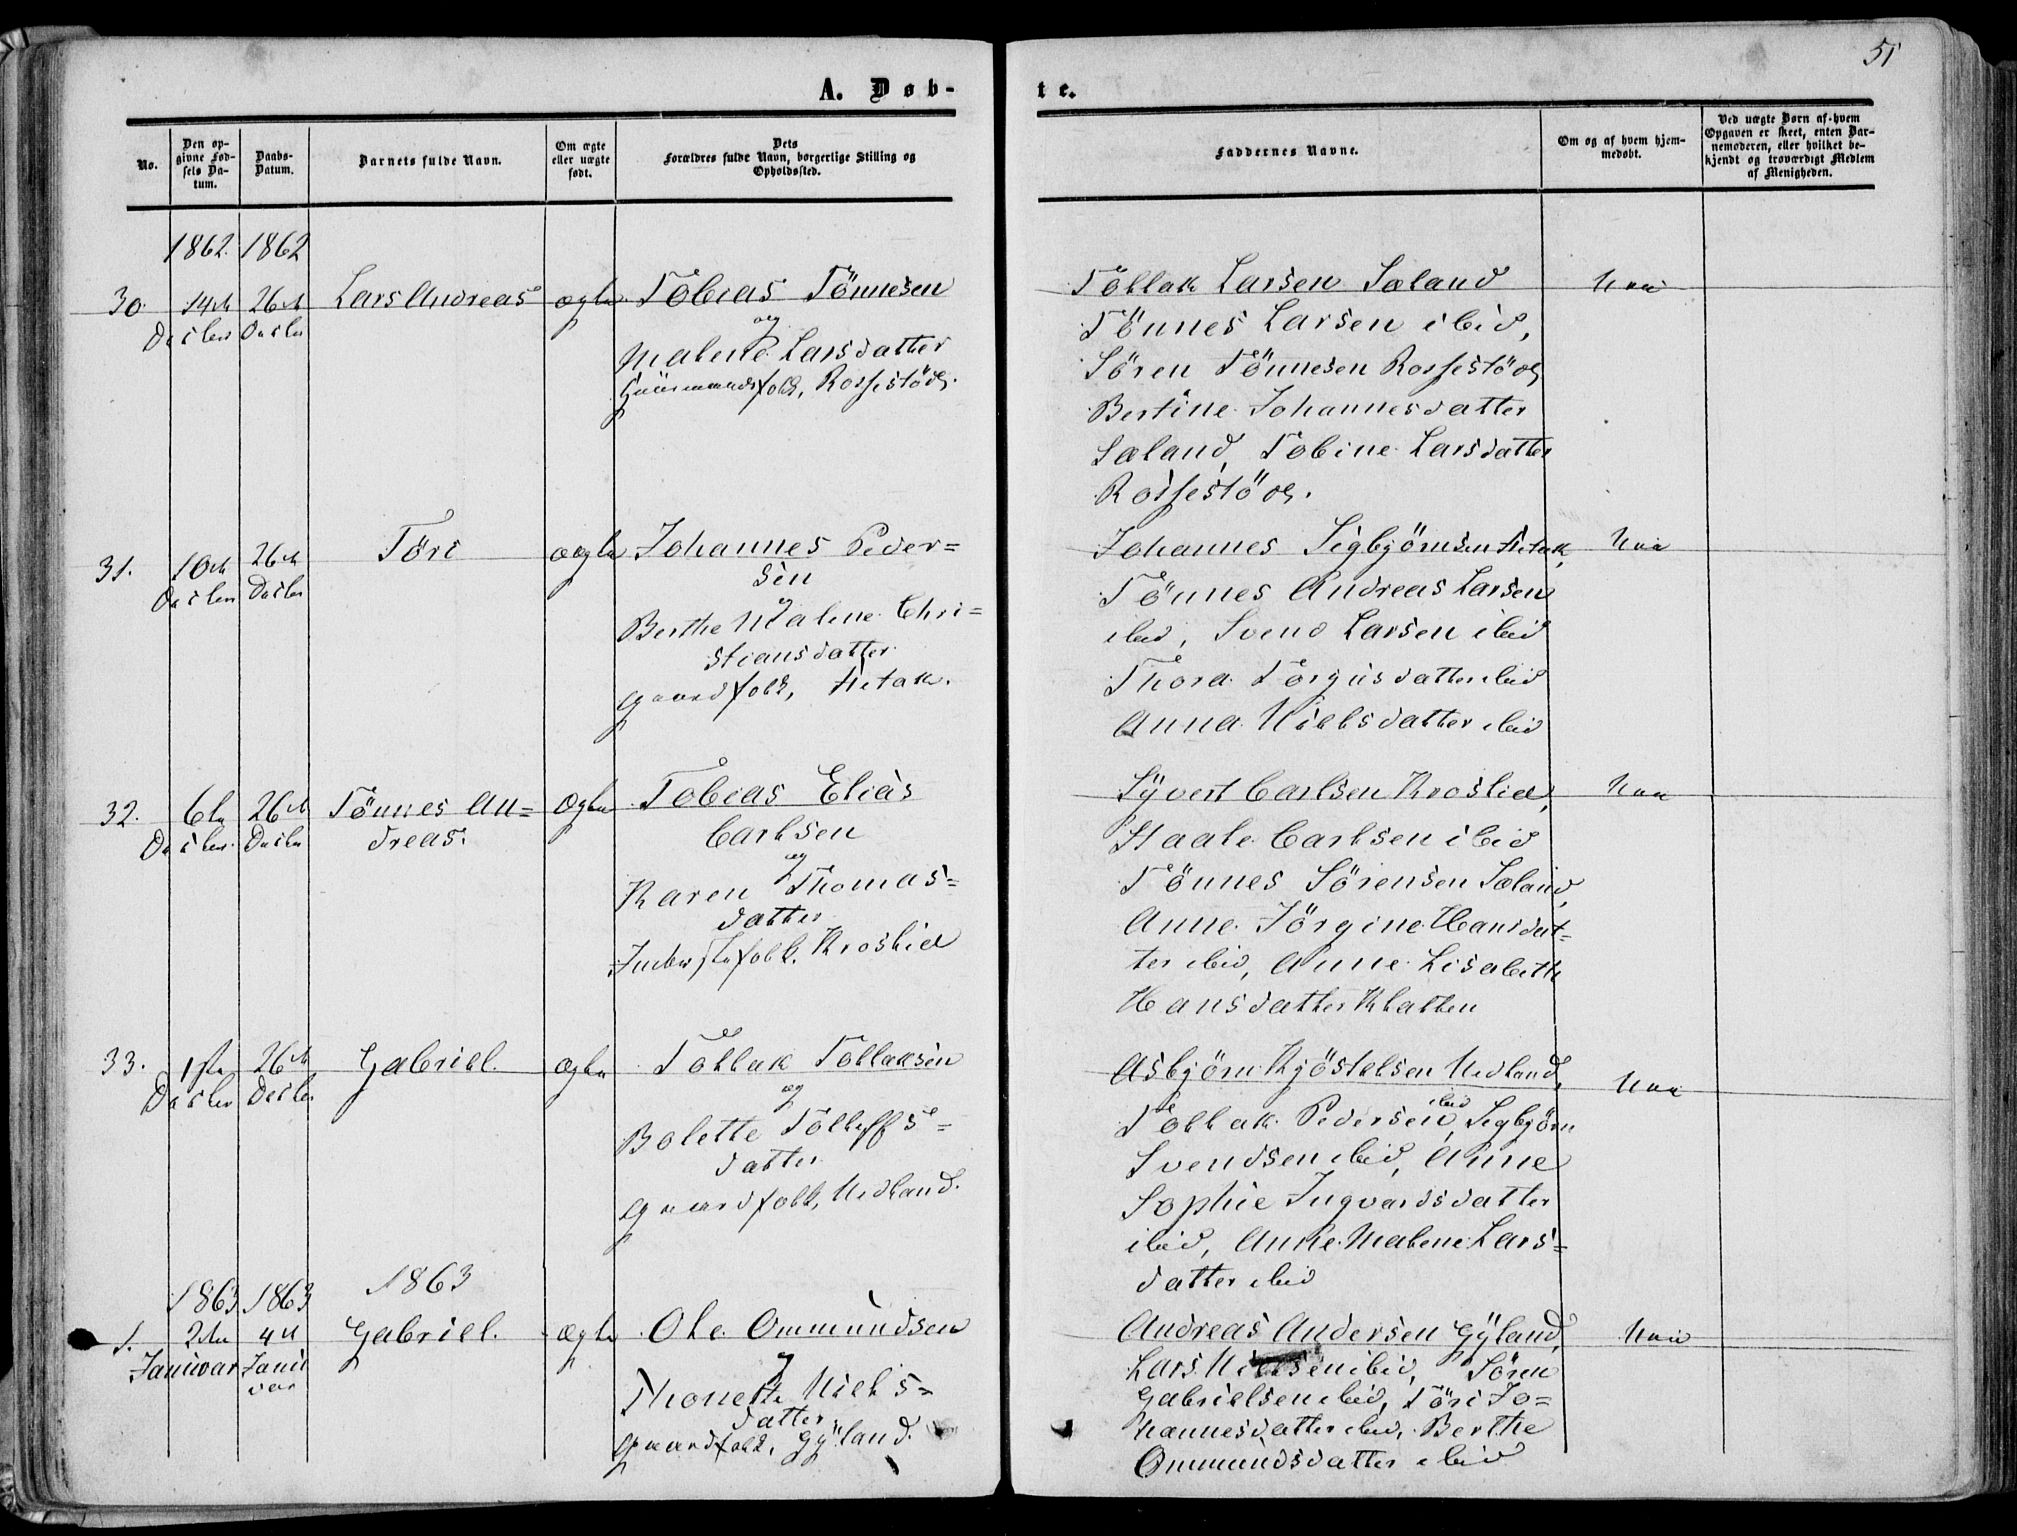 51
A. Døb-
te.
No.
Den op-
givne Fød-
sels Da-
tum.
Daabs-
Datum.
Barnets fulde Navn.
Om ægte
eller uægte
født.
Dets
Forældres fulde Navn, borgerlige Stilling og
Opholdssted.
Faddernes Navne.
Om og af hvem hjem-
medøbt.
Ved uægte Børn af hvem
Opgaven er skeet, enten Bar-
nemoderen, eller hvilket be-
kjendt og troværdigt Medlem
af Menigheden.
1862. 1862
30. 14de 26de Lars Andreas ægte Tobias Tönnesen
Decbr Decbr og
Malene Larsdatter
Huusmandsfolk, Rossestöl.
Tollak Larsen Sæland Nei
Tönnes Larsen ibid,
Sören Tönnesen Rossestöl
Bertine Johannesdatter
Sæland, Tobine Larsdatter
Rossestöl.
31. 10de 26de Töri ægte Johannes Peder=
Decbr Decbr sen
og
Berthe Malene Chri=
stiansdatter
gaardfolk, Fitak.
Johannes Sigbjörnsen Fitak, Nei
Tönnes Andreas Larsen
ibid, Svend Larsen ibid
Thora Törgusdatter ibid
Anna Nielsdatter ibid
32. 6te 26de Tönnes An= ægte Tobias Elias
Decbr. Decbr dreas. Carlsen
og
Karen Thomas=
datter
Inderstfolk, Kroslid
Syvert Carlsen Kroslid, Nei
Staale Carlsen ibid
Tönnes Sörensen Sæland,
Anne Jörgine Hansdat=
ter ibid, Anne Lisabeth
Hansdatter Klatten
33. 1ste 26de Gabriel. ægte Tollak Tollaksen
Decbr Decbr og
Bolette Tolleffs=
datter
gaardfolk, Nedland.
Asbjörn Kjöstelsen Nedland, Nei
Tollak Pedersen ibid, Sigbjörn
Svendsen ibid, Anne
Sophie Ingvardsdatter
ibid, Anne Malene Lars=
datter ibid
1863 1863 1863
1. 2den 4de Gabriel. ægte Ole Ommundsen
Januar Janu
var og
Thonette Niels=
datter
gaardfolk, Gyland.
Andreas Andersen Gyland, Nei
Lars Nielsen ibid, Sören
Gabrielsen ibid, Töri Jo=
hannesdatter ibid, Berthe
Ommundsdatter ibid